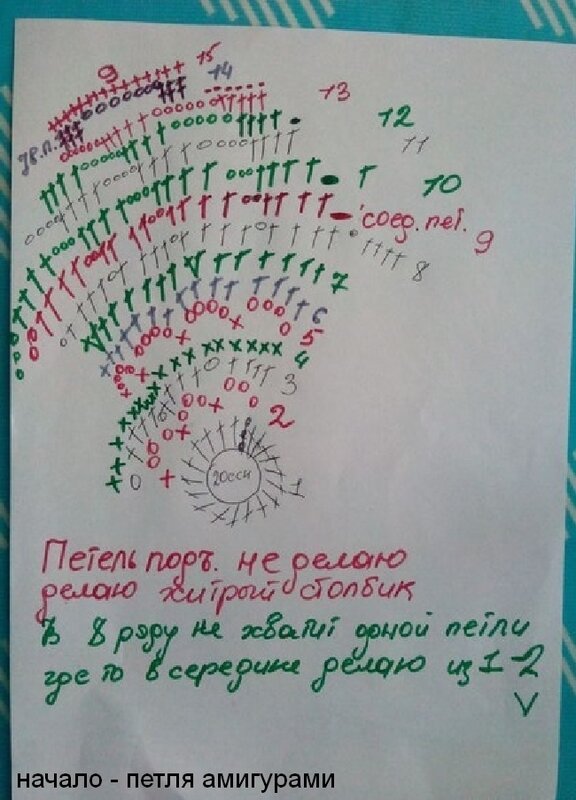 9
15
14
13
12
11
10
соед. пет.
9
8
7
6
5
4
3
2
20ссн
1
Петель подъ. не делаю
делаю хитрый столбик
В 8 ряду не хватит одной петли
где то в середине делаю из 1-2
V
начало - петля амигурами